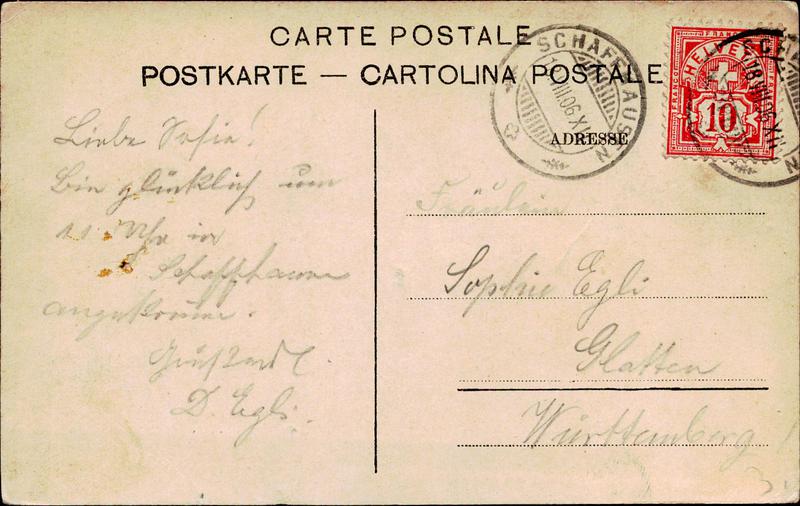 CARTE POSTALE
POSTKARTE — CARTOLINA POSTALE
SCHAFFHAUSEN
HELVETIA
FRANCO
10
ADRESSE
Liebe Sofie!
Bin glücklich um
11 Uhr in
Schaffhausen
angekommen.
D. Egli.
Fräulein
Sophie Egli
Glatten
Württemberg!